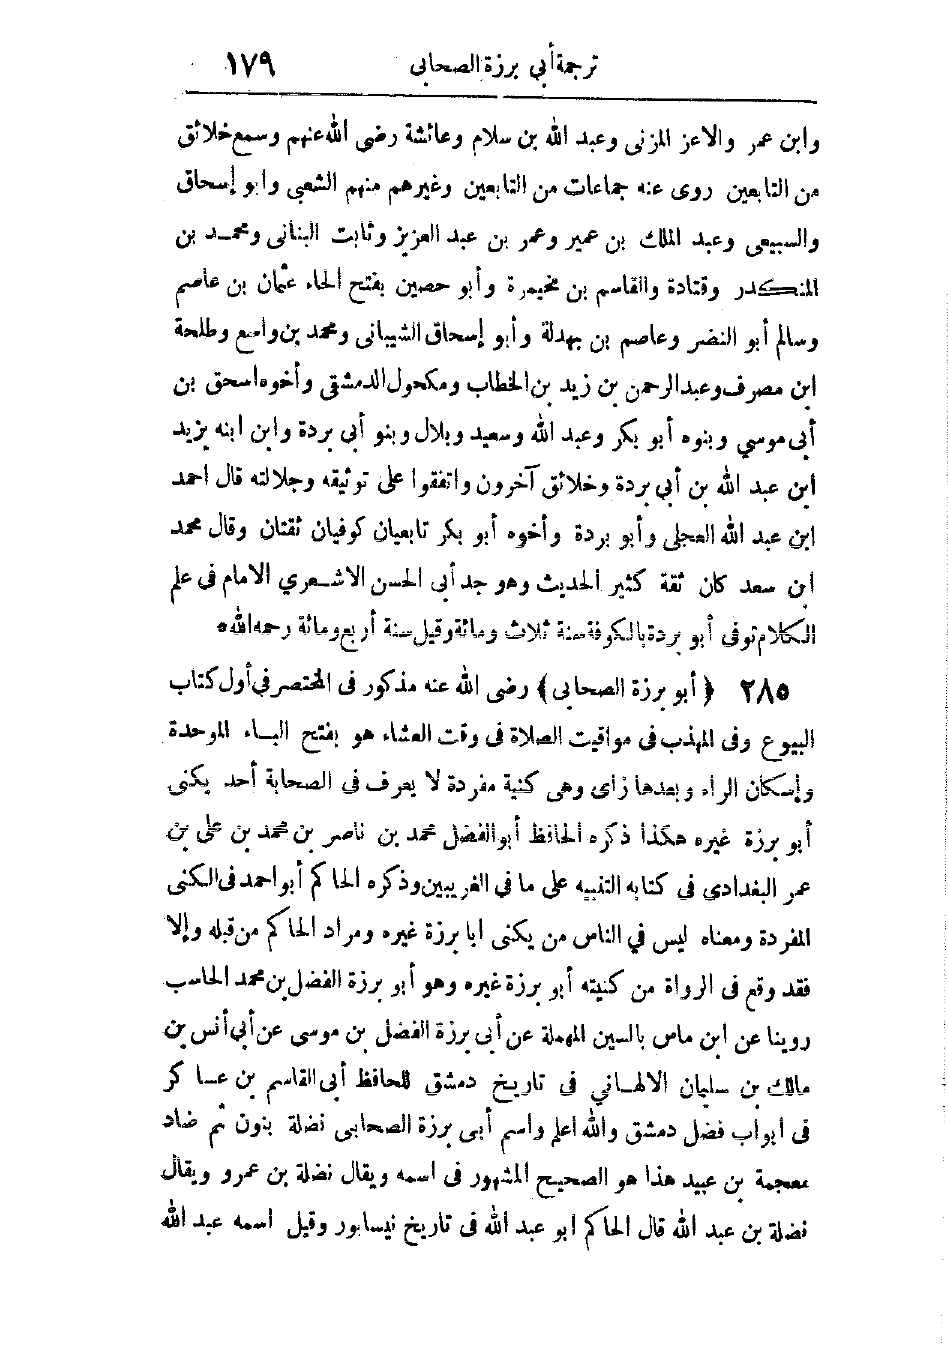 ترجمة أبي برزة الصحابى ١٧٩
وابن عمر والاعز المزنى وعبد الله بن سلام وعائشة رضى الله عنهم وسمع خلائق
من التابعين روى عنه جماعات من التابعين وغيرهم منهم الشعبى وابو إسحاق
والسبيعى وعبد الملك بن عمير وعمر بن عبد العزيز وثابت البنانى ومحمد بن
المنكدر وقتادة والقاسم بن مخيمرة وأبو حصين بفتح الحاء عثمان بن عاصم
وسالم أبو النضر وعاصم بن بهدلة وأبو إسحاق الشيبانى ومحمد بن واسع وطلحة
ابن مصرف وعبد الرحمن بن زيد بن الخطاب ومكحول الدمشقى وأخوه اسحق بن
أبى موسي وبنوه أبو بكر وعبد الله وسعيد وبلال وبنو أبي بردة وابن ابنه يزيد
ابن عبد الله بن أبي بردة وخلائق آخرون واتفقوا على توثيقه وجلالته قال احمد
ابن عبد الله العجلى وأبو بردة وأخوه أبو بكر تابعيان كوفيان ثقتان وقال محمد
ابن سعد كان ثقة كثير الحديث وهو جد أبى الحسن الاشعري الامام فى علم
الكلام توفى أبو بردة بالكوفة سنة ثلاث ومائة وقيل سنة أربع ومائة رحمه الله ٠
٢٨٥ ﴿ أبو برزة الصحابى ﴾ رضى الله عنه مذكور فى المختصر في أول كتاب
البيوع وفى المهذب فى مواقيت الصلاة فى وقت العشاء هو بفتح الباء الموحدة
وإسكان الراء وبعدها زاى وهى كنية مفردة لا يعرف فى الصحابة أحد يكنى
أبو برزة غيره هكذا ذكره الحافظ أبو الفضل محمد بن ناصر بن محمد بن على بن
عمر البغدادي فى كتابه التنبيه على ما في الغريبين وذكره الحاكم أبو احمد فى الكنى
المفردة ومعناه ليس في الناس من يكنى ابا برزة غيره ومراد الحاكم من قبله وإلا
فقد وقع فى الرواة من كنيته أبو برزة غيره وهو أبو برزة الفضل بن محمد الحاسب
روينا عن ابن ماس بالسين المهملة عن أبى برزة الفضل بن موسى عن أبي أنس بن
مالك بن سليمان الالهاني فى تاريخ دمشق للحافظ أبى القاسم بن عساكر
فى ابواب فضل دمشق والله اعلم واسم أبى برزة الصحابى نضلة بنون ثم ضاد
معجمة بن عبيد هذا هو الصحيح المشهور فى اسمه ويقال نضلة بن عمرو ويقال
نضلة بن عبد الله قال الحاكم ابو عبد الله فى تاريخ نيسابور وقيل اسمه عبد الله